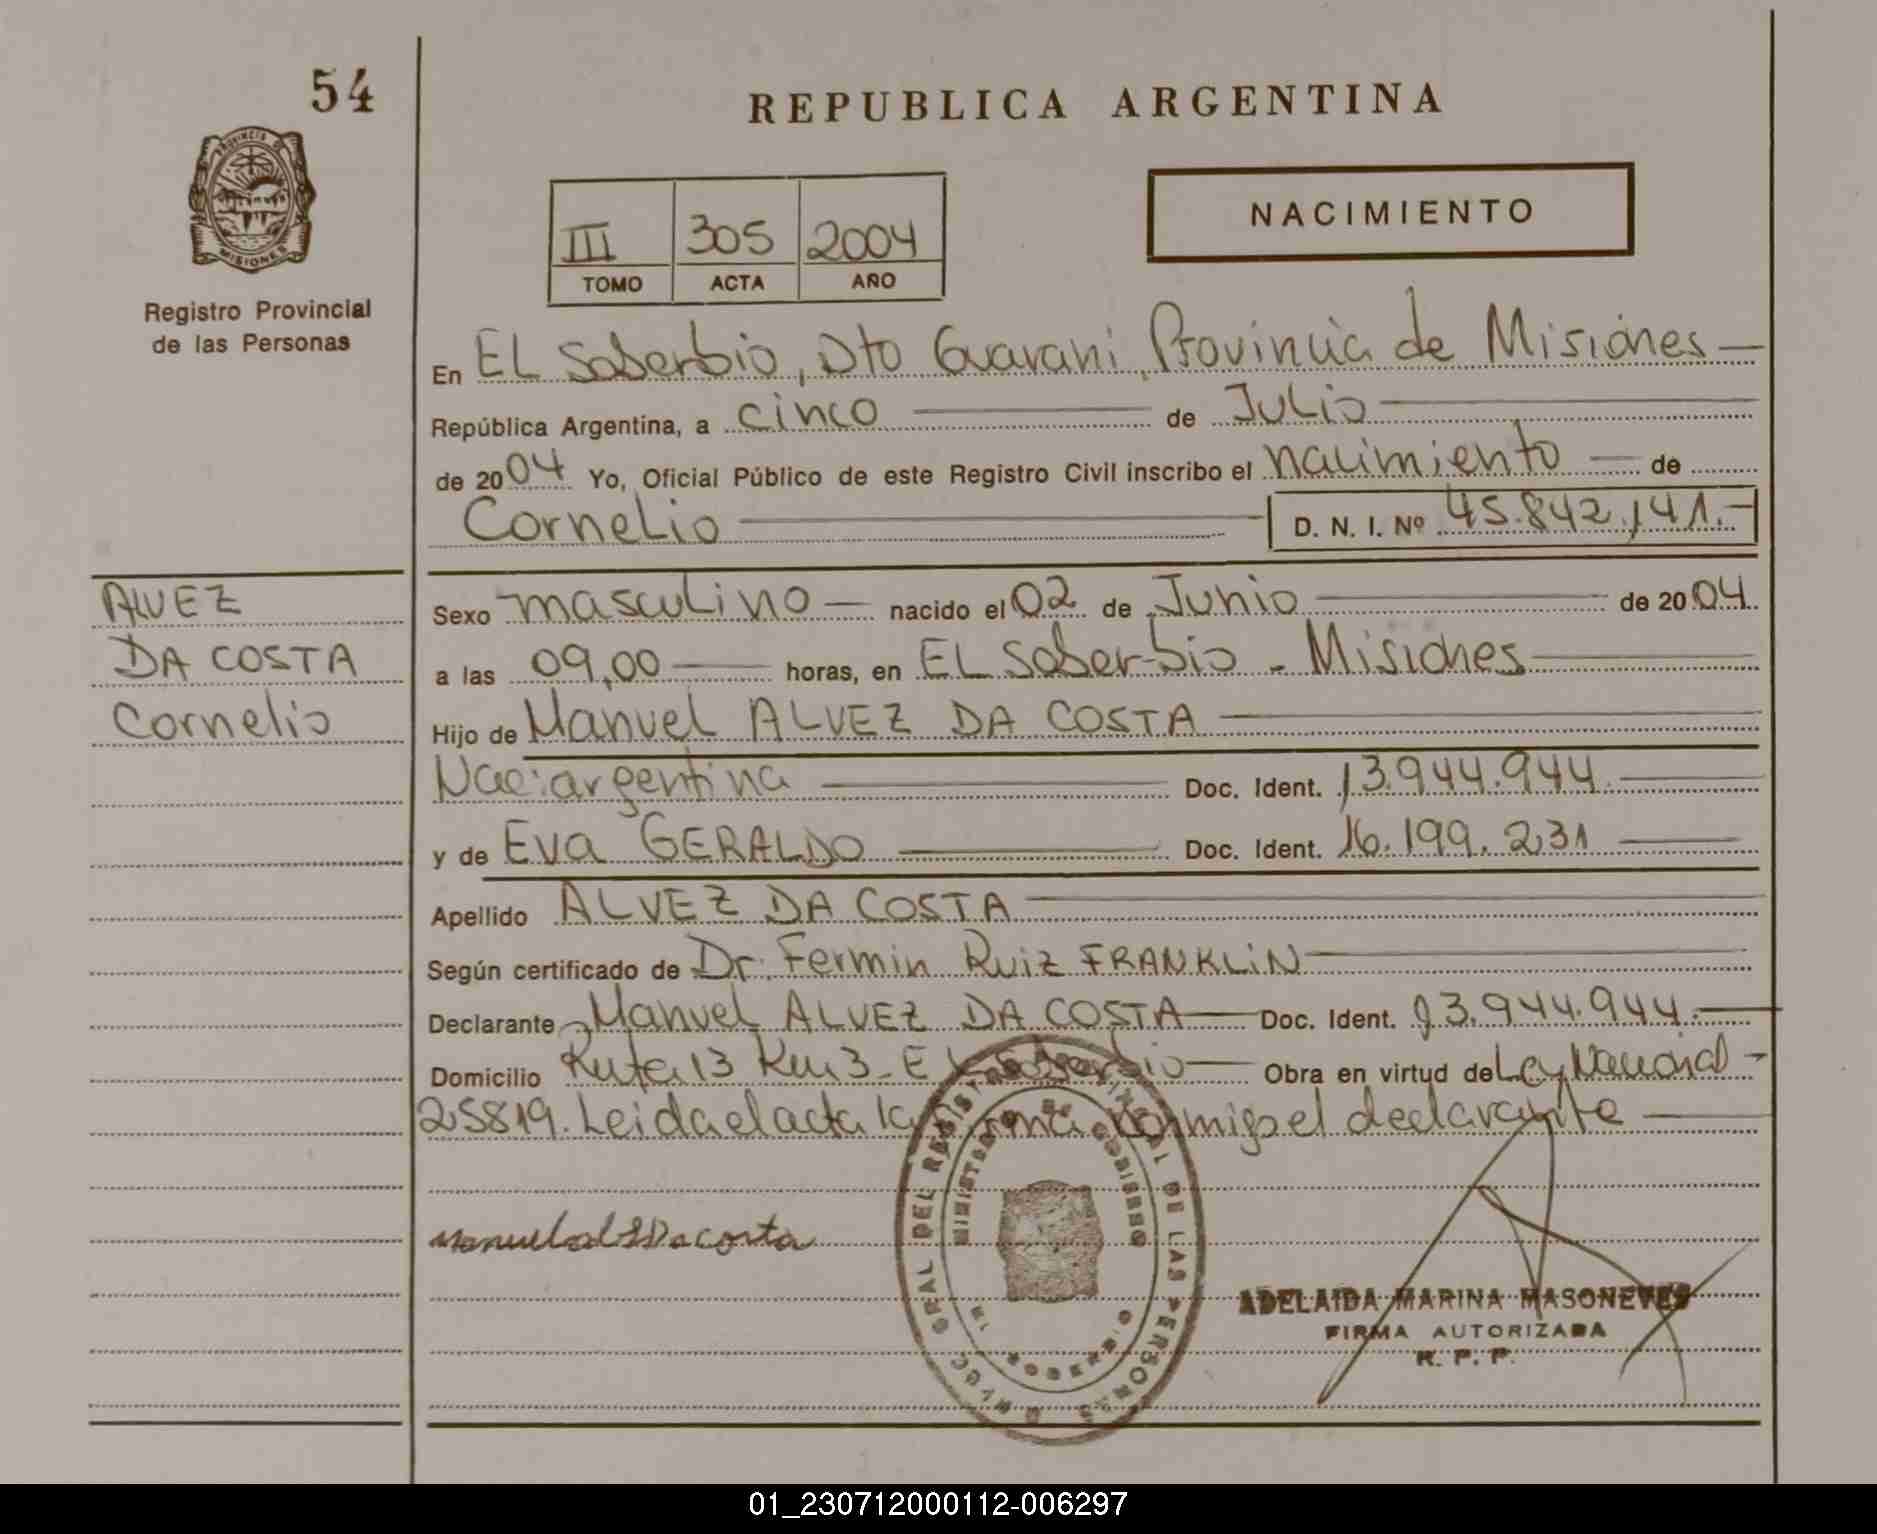 54
REPUBLICA ARGENTINA
PROVINCIA DE
MISIONES
Registro Provincial
de las Personas
III 305 2004
TOMO ACTA AÑO
NACIMIENTO
En EL Soberbio, Dto Guarani, Provincia de Misiones
República Argentina, a cinco de Julio
de 2004 Yo, Oficial Público de este Registro Civil inscribo el nacimiento de
Cornelio D. N. I. Nº 45.842.141.-
ALVEZ
DA COSTA
Cornelio
Sexo masculino nacido el 02 de Junio de 2004
a las 09,00 horas, en EL Soberbio - Misiones
Hijo de Manuel ALVEZ DA COSTA
Nac: argentina Doc. Ident. 13.944.944.
y de Eva GERALDO Doc. Ident. 16.199.231
Apellido ALVEZ DA COSTA
Según certificado de Dr. Fermin Ruiz FRANKLIN
Declarante Manuel ALVEZ DA COSTA Doc. Ident. 13.944.944.
Domicilio Ruta 13 Km 3 - EL Soberbio Obra en virtud de Ley Nacional -
25819. Leida el acta la firma conmigo el declarante
Manuel al Da costa
GRAL DEL REGISTRO PROVINCIAL DE LAS PERSONAS
MINISTERIO DE GOBIERNO
SOBERBIO
ADELAIDA MARINA MASONEVES
FIRMA AUTORIZADA
R. P. P.
01_230712000112-006297